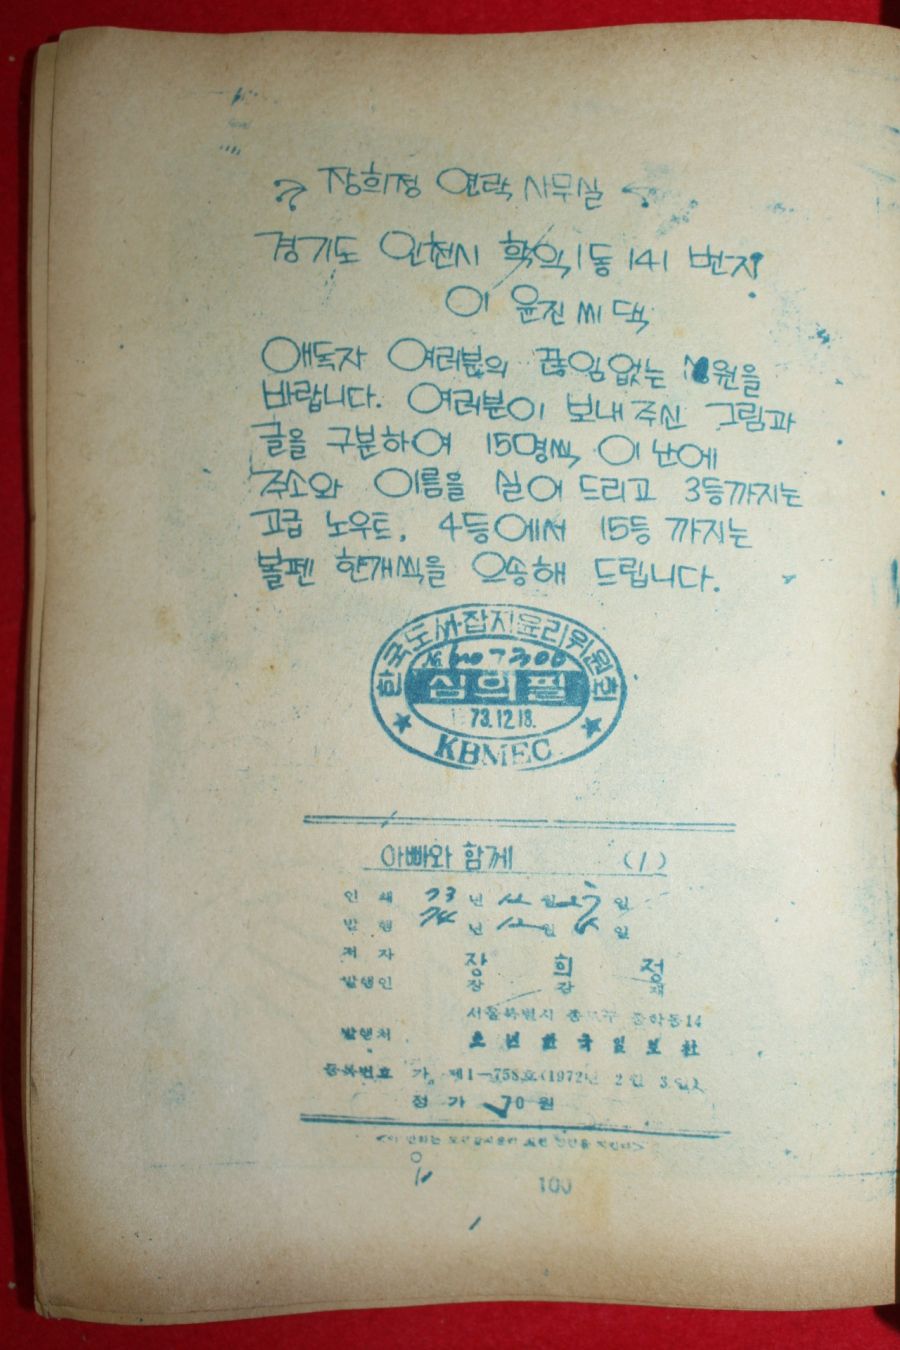 장희정 연락 사무실
경기도 인천시 학익1동 141 번지
이 윤진 씨 댁
애독자 여러분의 끊임없는 성원을
바랍니다. 여러분이 보내주신 그림과
글을 구분하여 15명씩 이 난에
주소와 이름을 실어 드리고 3등까지는
고급 노우트, 4등에서 15등 까지는
볼펜 한개씩을 우송해 드립니다.
한국도서잡지윤리위원회
심의필
73.12.18.
KBMEC
아빠와 함께 (1)
인쇄 73년 월 일
발행 74년 월 일
저자 장희정
발행인 장강재
서울특별시 종로구 중학동14
발행처 소년한국일보社
등록번호 가 제1-758호(1972년 2월 3일)
정가 70원
100